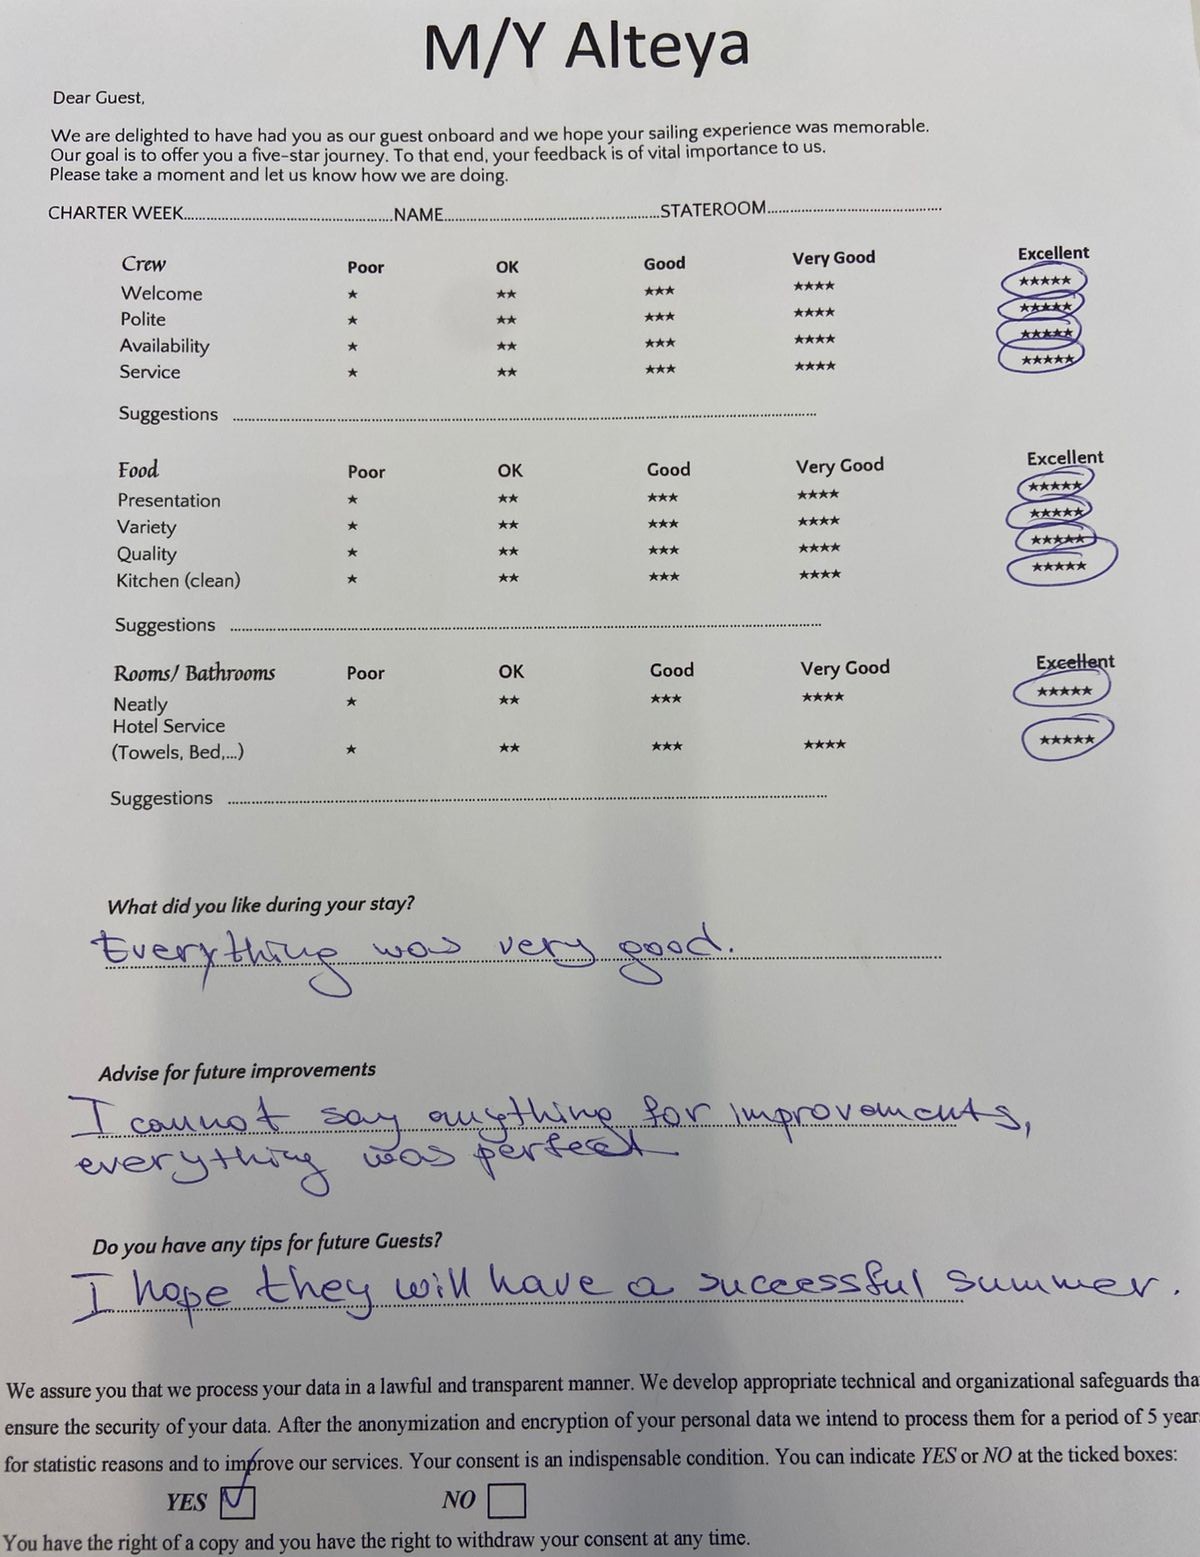 M/Y Alteya
Dear Guest,
We are delighted to have had you as our guest onboard and we hope your sailing experience was memorable.
Our goal is to offer you a five-star journey. To that end, your feedback is of vital importance to us.
Please take a moment and let us know how we are doing.
CHARTER WEEK..........NAME..........STATEROOM..........
Crew Poor OK Good Very Good Excellent
Welcome ★ ★★ ★★★ ★★★★ ★★★★★
Polite ★ ★★ ★★★ ★★★★ ★★★★★
Availability ★ ★★ ★★★ ★★★★ ★★★★★
Service ★ ★★ ★★★ ★★★★ ★★★★★
Suggestions ..........
Food Poor OK Good Very Good Excellent
Presentation ★ ★★ ★★★ ★★★★ ★★★★★
Variety ★ ★★ ★★★ ★★★★ ★★★★★
Quality ★ ★★ ★★★ ★★★★ ★★★★★
Kitchen (clean) ★ ★★ ★★★ ★★★★ ★★★★★
Suggestions ..........
Rooms/ Bathrooms Poor OK Good Very Good Excellent
Neatly ★ ★★ ★★★ ★★★★ ★★★★★
Hotel Service
(Towels, Bed,...) ★ ★★ ★★★ ★★★★ ★★★★★
Suggestions ..........
What did you like during your stay?
Everything was very good.
Advise for future improvements
I cannot say anything for improvements,
everything was perfect
Do you have any tips for future Guests?
I hope they will have a successful summer.
We assure you that we process your data in a lawful and transparent manner. We develop appropriate technical and organizational safeguards tha
ensure the security of your data. After the anonymization and encryption of your personal data we intend to process them for a period of 5 year
for statistic reasons and to improve our services. Your consent is an indispensable condition. You can indicate YES or NO at the ticked boxes:
YES NO
You have the right of a copy and you have the right to withdraw your consent at any time.